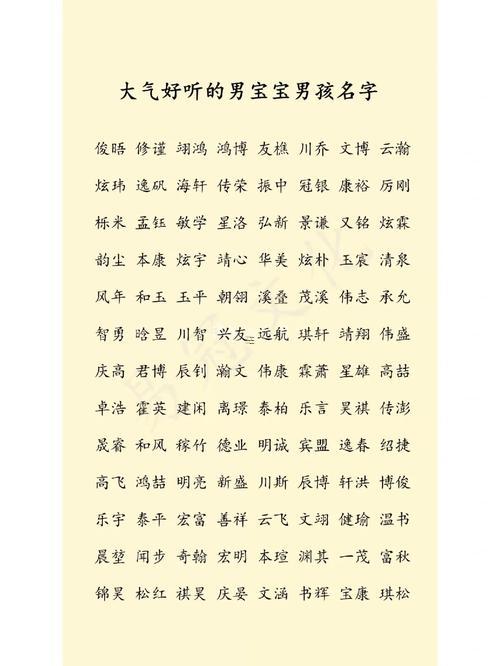 大气好听的男宝宝男孩名字
俊晤 修谨 翊鸿 鸿博 友樵 川乔 文博 云瀚
炫玮 逸矾 海轩 传荣 振中 冠银 康裕 厉刚
栎米 孟钰 敏学 星洛 弘新 景谦 又铭 炫霖
韵尘 本康 炫宇 靖心 华美 炫朴 玉宸 清泉
风年 和玉 玉平 朝翎 溪叠 茂溪 伟志 承允
智勇 晗昱 川智 兴友 远航 琪轩 靖翔 伟盛
庆高 君博 辰钊 瀚文 伟康 霖萧 星雄 高喆
卓浩 霍英 建闲 离璟 泰柏 乐言 昊祺 传澎
晟睿 和风 稼竹 德业 明诚 宾盟 逸春 绍捷
高飞 鸿喆 明亮 新盛 川斯 辰博 轩洪 博俊
乐宇 泰平 宏富 善祥 云飞 文翊 健瑜 温书
晨堃 闻步 奇翰 宏明 本瑄 渊其 一茂 富秋
锦昊 松红 祺昊 庆晏 文涵 书辉 宝康 琪松